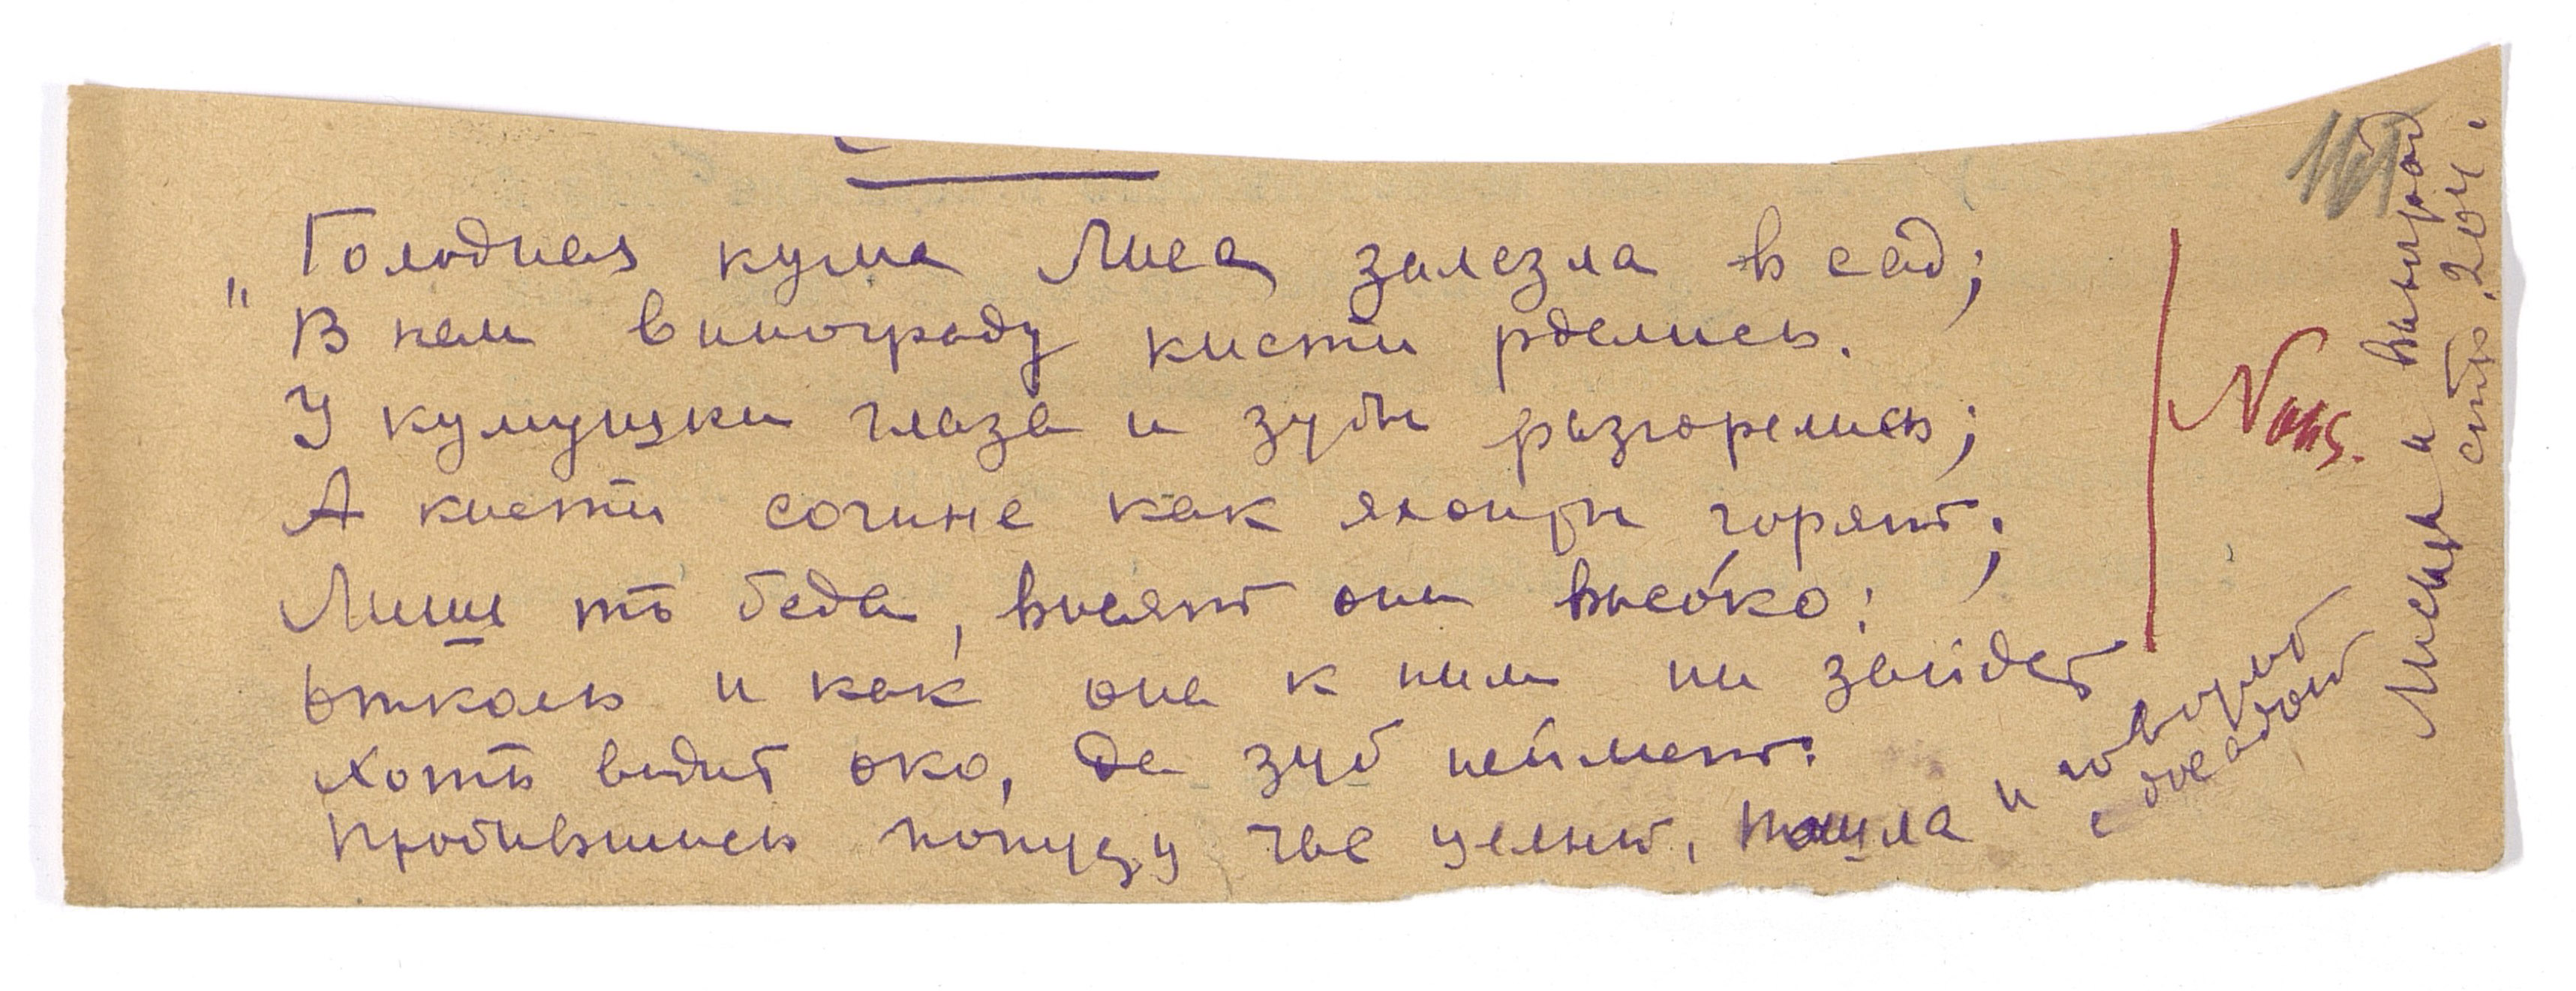 „Голодная кума Лиса залезла в сад;
В нем винограду кисти рделись.
У кумушки глаза и зубы разгорелись;
А кисти сочные как яхонты горят;
Лишь то беда, висят они высо́ко:
Отколь и как она к ним ни зайдет
Хоть видит око, да зуб неймет.
Пробившись попусту час целый, пошла и говорит
с досадой
Лисица и виноград
стр. 204.